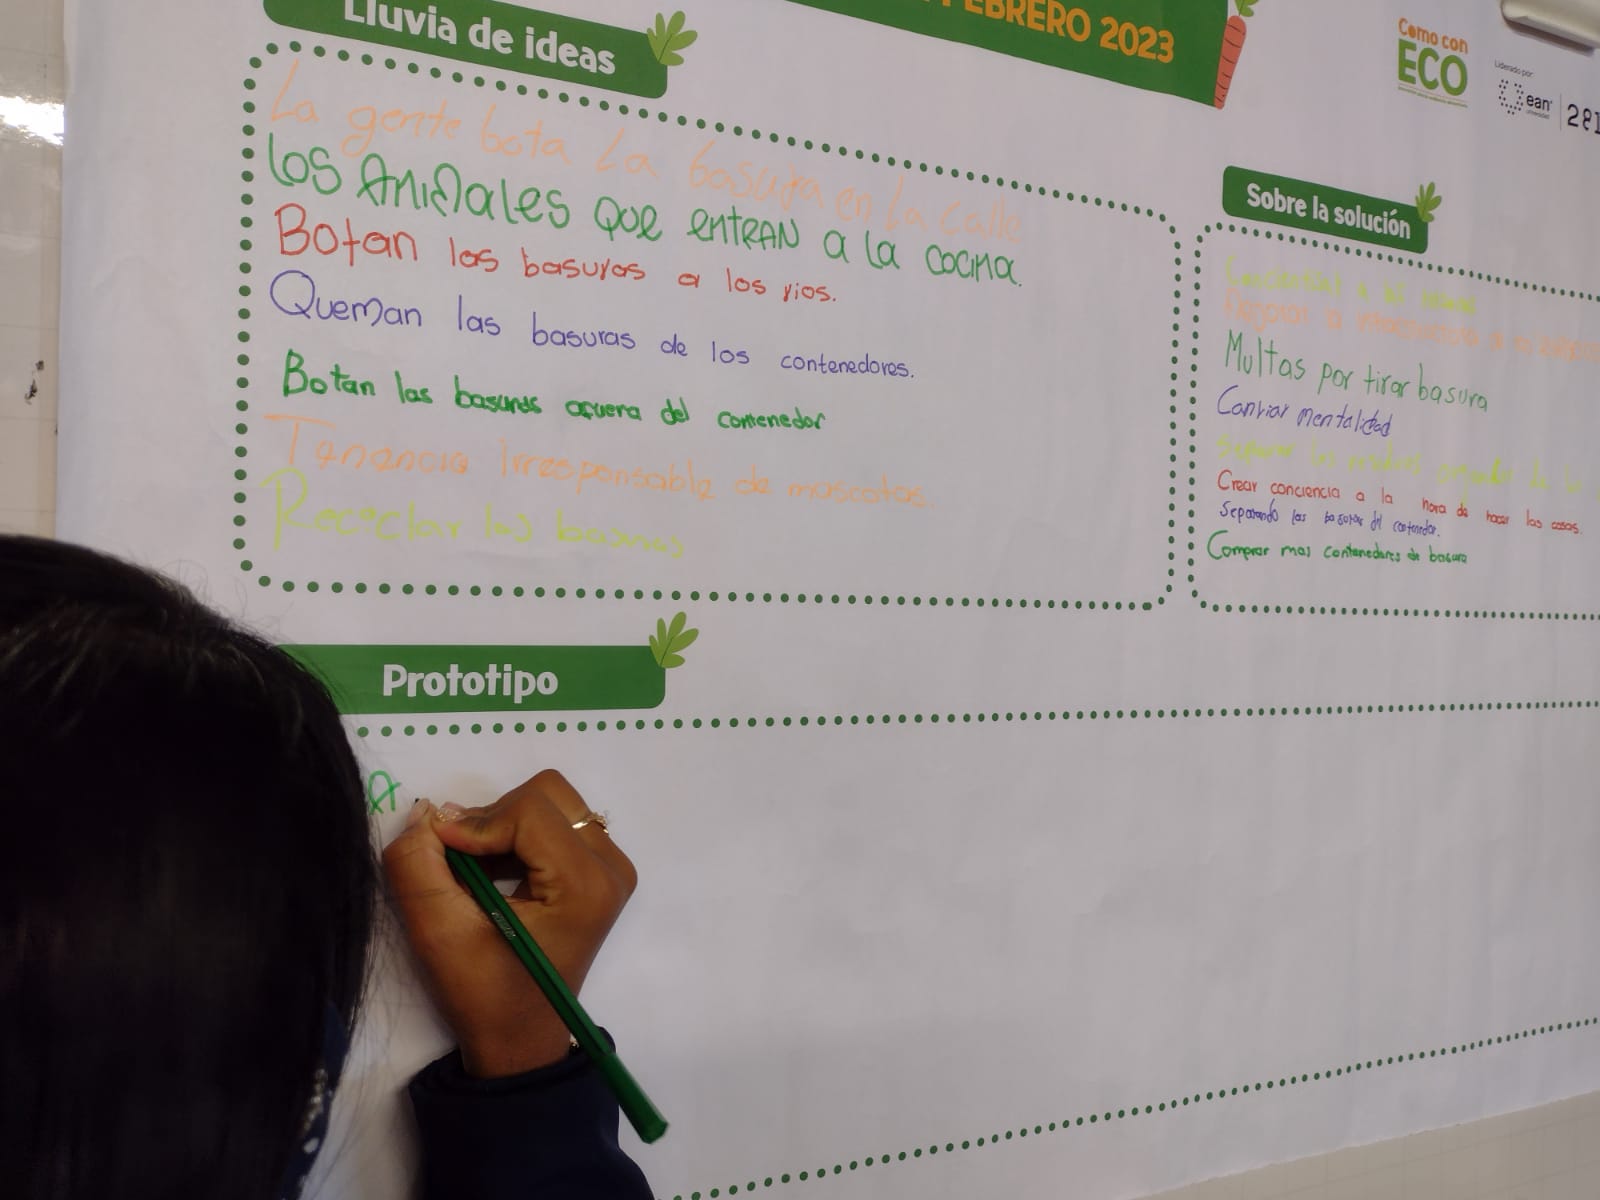 Lluvia de ideas
FEBRERO 2023
Como con
ECO
Liderado por:
ean
universidad
281
La gente bota la basura en la calle
Los Animales que entran a la cocina.
Botan las basuras a los rios.
Queman las basuras de los contenedores.
Botan las basuras afuera del contenedor
Tenencia irresponsable de mascotas.
Recoclar las basuras
Sobre la solución
Multas por tirar basura
mentalidad
Separar los
Crear conciencia a la hora de hacer las cosas.
Separando las basuras del contenedor.
Comprar mas contenedores de basura
Prototipo
A